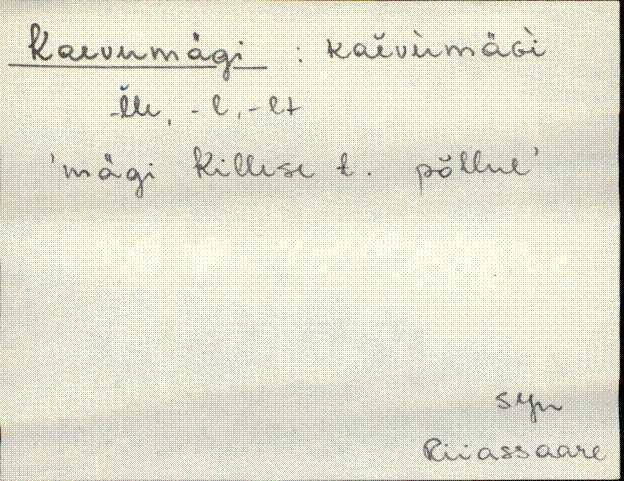 Kaevumägi : kaĕvùmäGì
-l̆le, -l, -lt
'mägi Killese t. põllul'
syn
Riiassaare